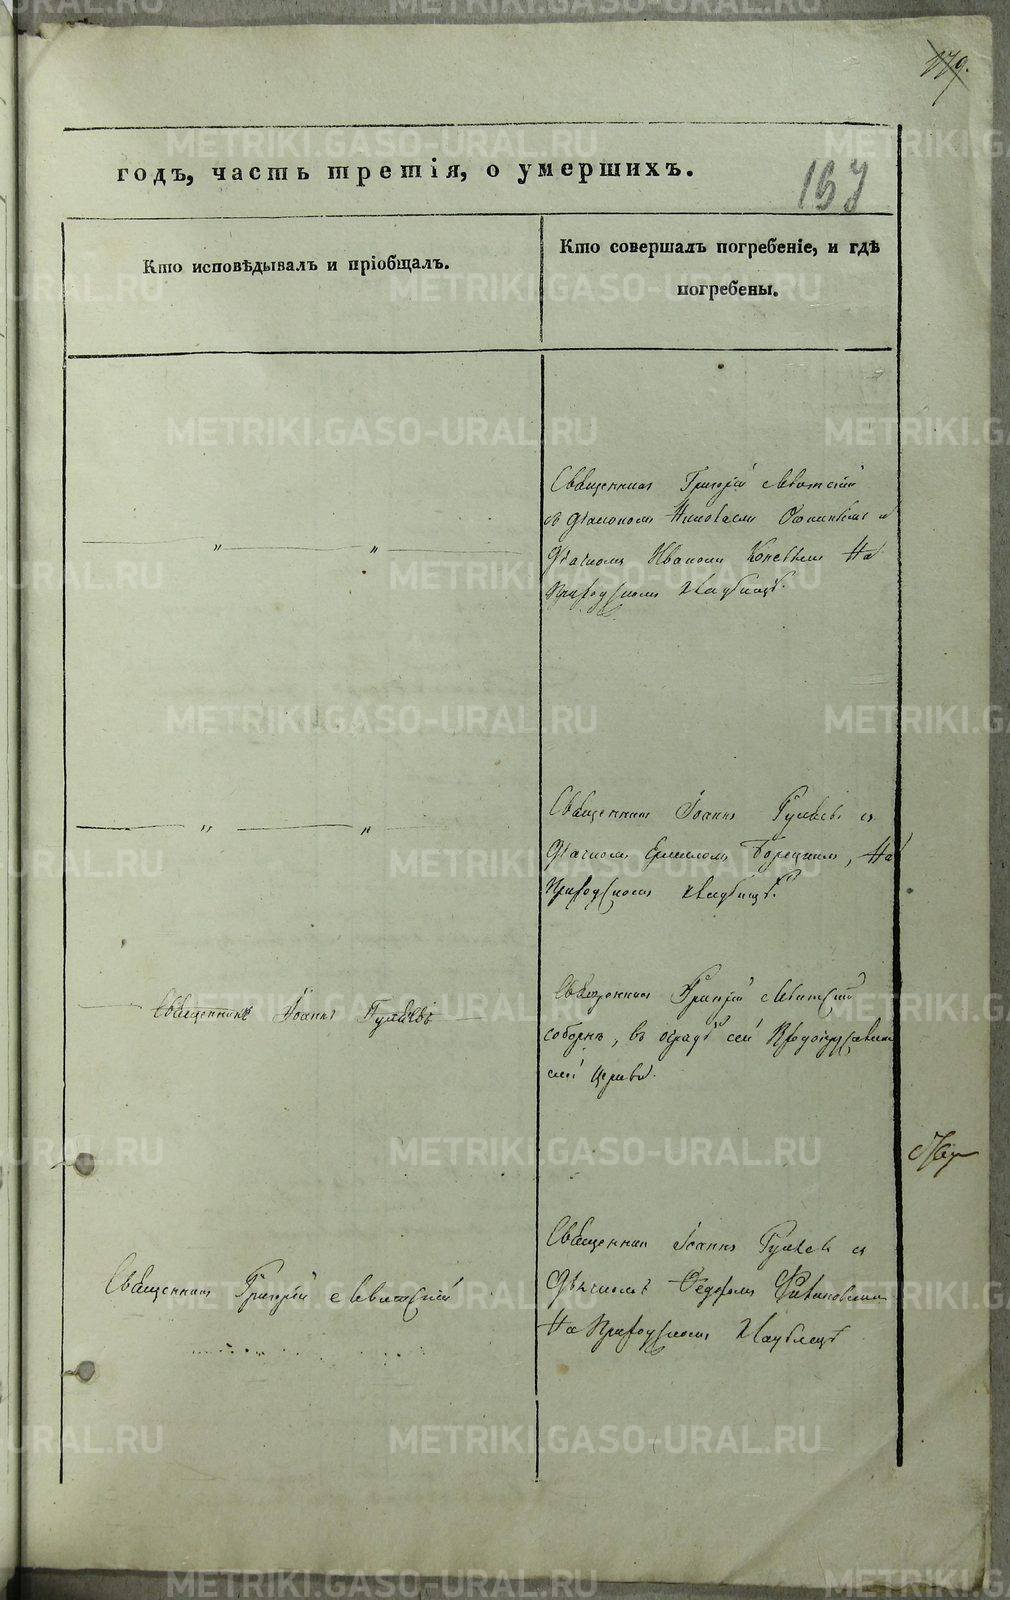 179.
годъ, часть третія, о умершихъ.
157
Кто исповѣдывалъ и пріобщалъ.
Кто совершалъ погребеніе, и гдѣ
погребены.
Священникъ Григорій Левитскій
съ Діакономъ Николаемъ и
Дьячкомъ Иваномъ На
Приходскомъ Кладбищѣ.
Священникъ Іоаннъ Гуляевъ съ
Дьячкомъ Ермиломъ Борецкимъ, На
Приходскомъ кладбищѣ.
Священникъ Іоаннъ Гуляевъ
Священникъ Григорій Левитскій
соборнѣ, въ оградѣ сей
сей Церкви.
Священникъ Григорій Левитскій
Священникъ Іоаннъ Гуляевъ съ
Дьячкомъ Ѳедоромъ
На Приходскомъ Кладбищѣ
METRIKI.GASO-URAL.RU